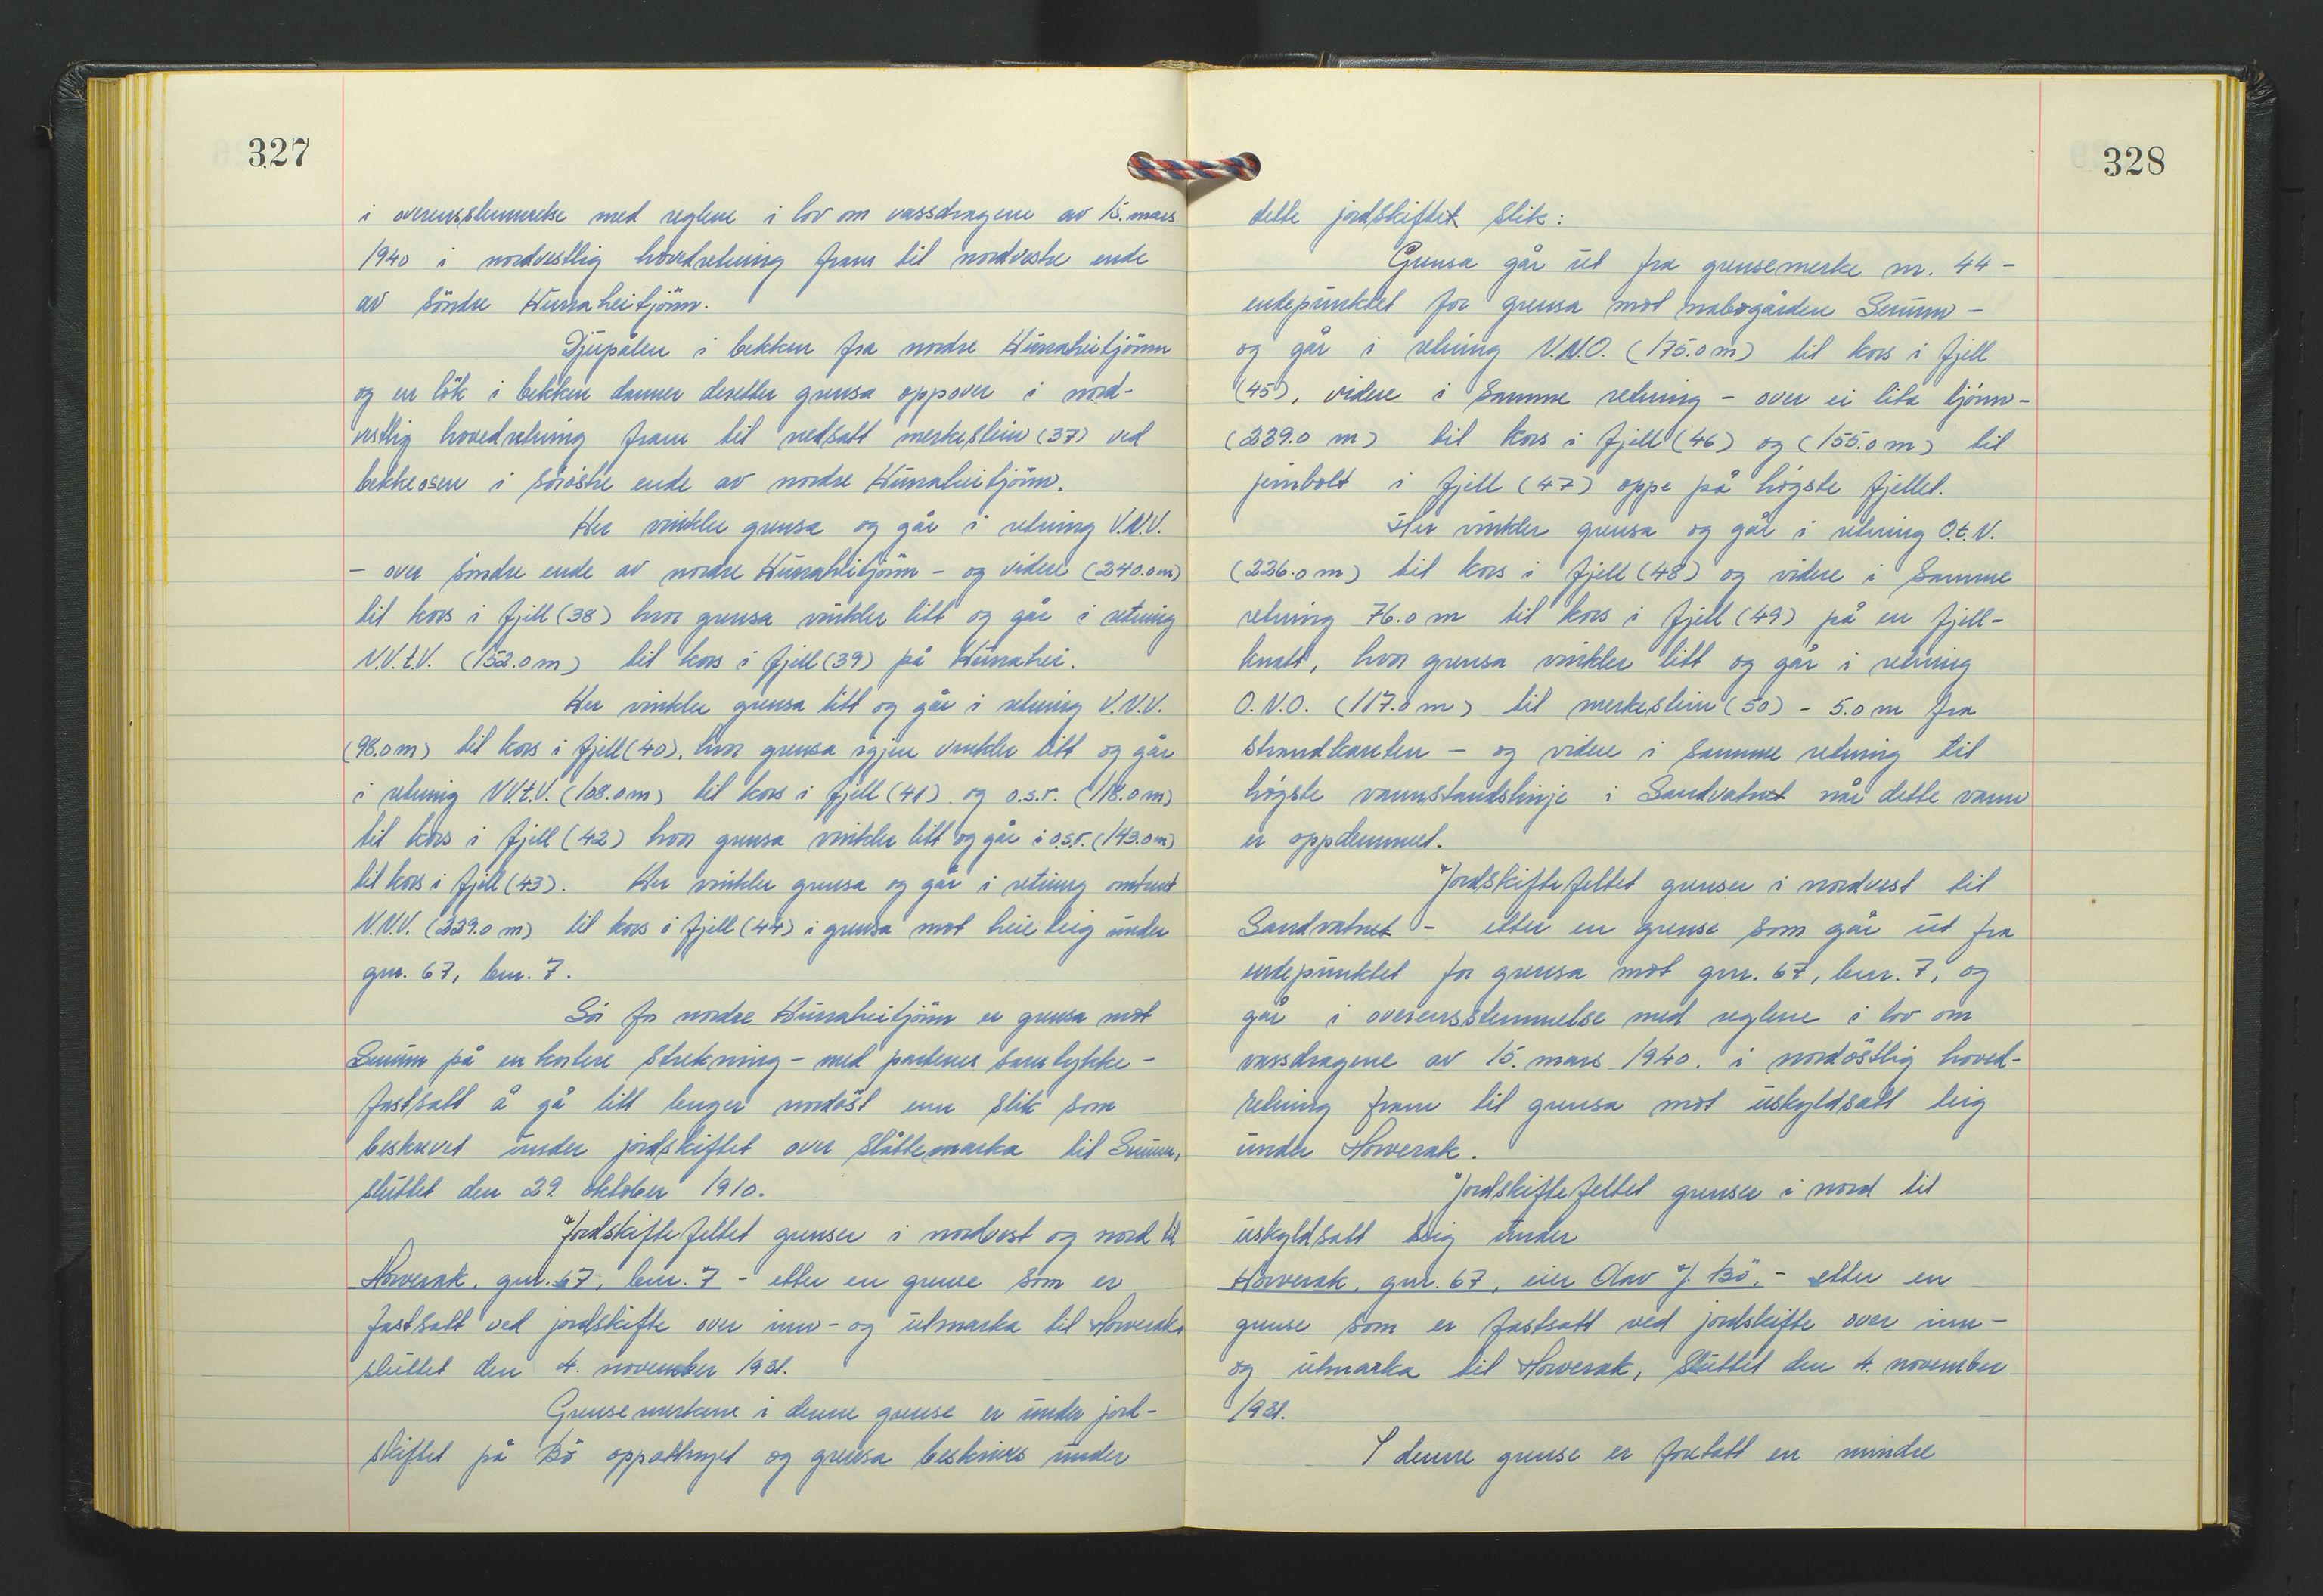 327
i overensstemmelse med reglene i lov om vassdragene av 15. mars
1940 i nordvestlig hovedretning fram til nordvestre ende
av söndre Hurraheitjönn.
Djupålen i bekken fra nordre Hurraheitjönn
og en lök i bekken danner deretter grensa oppover i nord-
vestlig hovedretning fram til nedsatt merkestein (37) ved
bekkeosen i söröstre ende av nordre Hurraheitjönn.
Her vinkler grensa og går i retning V.N.V.
- over söndre ende av nordre Hurraheitjönn - og videre (240.0 m)
til kors i fjell (38) hvor grensa vinkler litt og går i retning
N.V.t.V. (152.0 m) til kors i fjell (39) på Hurrahei.
Her vinkler grensa litt og går i retning V.N.V.
(98.0 m) til kors i fjell (40), hvor grensa igjen vinkler litt og går
i retning NV.t.V. (108.0 m) til kors i fjell (41) og o.s.r. (118.0 m)
til kors i fjell (42) hvor grensa vinkler litt og går i o.s.r. (143.0 m)
til kors i fjell (43). Her vinkler grensa og går i retning omtrent
N.N.V. (229.0 m) til kors i fjell (44) i grensa mot heie teig under
gnr. 67, bnr. 7.
Sör for nordre Hurraheitjönn er grensa mot
Senum på en kortere strekning - med partenes samtykke -
fastsatt å gå litt lenger nordöst enn slik som
beskrevet under jordskiftet over slåttemarka til Senum,
sluttet den 29. oktober 1910.
Jordskiftefeltet grenser i nordvest og nord til
Horverak, gnr. 67, bnr. 7 - etter en grense som er
fastsatt ved jordskifte over inn- og utmarka til Horverak,
sluttet den 4. november 1931.
Grensemerkene i denne grense er under jord-
skiftet på Bö oppattnyet og grensa beskrives under
328
dette jordskiftet slik:
Grensa går ut fra grensemerke nr. 44 -
endepunktet for grensa mot nabogården Senum -
og går i retning N.N.O. (175.0 m) til kors i fjell
(45), videre i samme retning - over ei lita tjönn -
(229.0 m) til kors i fjell (46) og (155.0 m) til
jernbolt i fjell (47) oppe på högste fjellet.
Her vinkler grensa og går i retning O.t.N.
(236.0 m) til kors i fjell (48) og videre i samme
retning 76.0 m til kors i fjell (49) på en fjell-
knatt, hvor grensa vinkler litt og går i retning
O.N.O. (117.0 m) til merkestein (50) - 5.0 m fra
strandkanten - og videre i samme retning til
högste vannstandslinje i Sandvatnet når dette vann
er oppdemmet.
Jordskiftefeltet grenser i nordvest til
Sandvatnet - etter en grense som går ut fra
endepunktet for grensa mot gnr. 67, bnr. 7, og
går i overensstemmelse med reglene i lov om
vassdragene av 15. mars 1940. i nordöstlig hoved-
retning fram til grensa mot uskyldsatt teig
under Horverak.
Jordskiftefeltet grenser i nord til
uskyldsatt teig under
Horverak, gnr. 67, eier Olav J. Bö, - etter en
grense som er fastsatt ved jordskifte over inn-
og utmarka til Horverak, sluttet den 4. november
1931.
I denne grense er foretatt en mindre